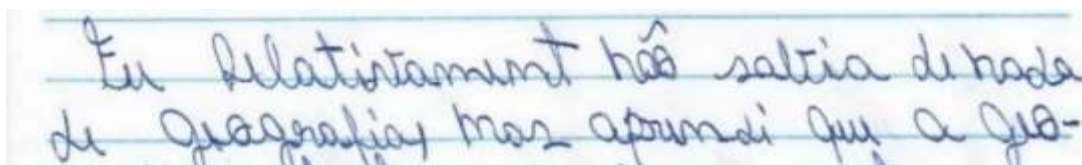 Eu Relativamente não sabia de nada
de geografia, mas aprendi que a geo-